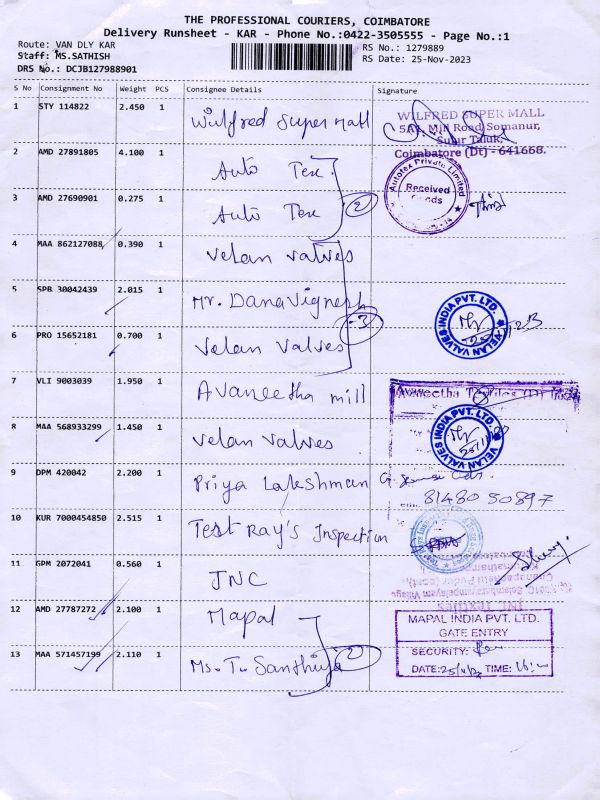 THE PROFESSIONAL COURIERS, COIMBATORE
Delivery Runsheet - KAR - Phone No.:0422-3505555 - Page No.:1
Route: VAN DLY KAR
RS No.: 1279889
Staff: MS.SATHISH
RS Date: 25-Nov-2023
DRS No.: DCJB127988901
S No Consignment No Weight PCS Consignee Details Signature
1 STY 114822 2.450 1 Wilfred Super Mall
WILFRED SUPER MALL
5A1, Mill Road, Somanur,
Sulur Taluk,
Coimbatore (Dt) - 641668.
2 AMD 27891805 4.100 1 Auto Tex
Autotex Private Limited
Received
Goods
3 AMD 27690901 0.275 1 Auto Tex
2
4 MAA 862127088 0.390 1 Velan Valves
5 SPB 30042439 2.015 1 Mr. Dana Vignesh
3
VELAN VALVES INDIA PVT. LTD.
6 PRO 15652181 0.700 1 Velan Valves
7 VLI 9003039 1.950 1 Avaneetha mill
Avaneetha Textiles (P) Ltd
8 MAA 568933299 1.450 1 Velan Valves
VELAN VALVES INDIA PVT. LTD.
9 DPM 420042 2.200 1 Priya Lakshman
81480 50897
10 KUR 7000454850 2.515 1 Test Ray's Inspection
11 GPM 2072041 0.560 1 JNC
12 AMD 27787272 2.100 1 Mapal
MAPAL INDIA PVT. LTD.
GATE ENTRY
SECURITY:
DATE: TIME:
13 MAA 571457199 2.110 1 Ms. T. Santhiya
2